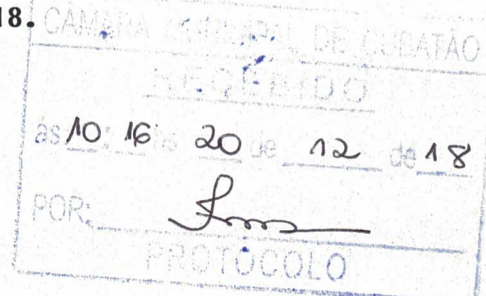 18.
CÂMARA MUNICIPAL DE CUBATÃO
RECEBIDO
às 10:16 hs 20 de 12 de 18
POR:
PROTOCOLO